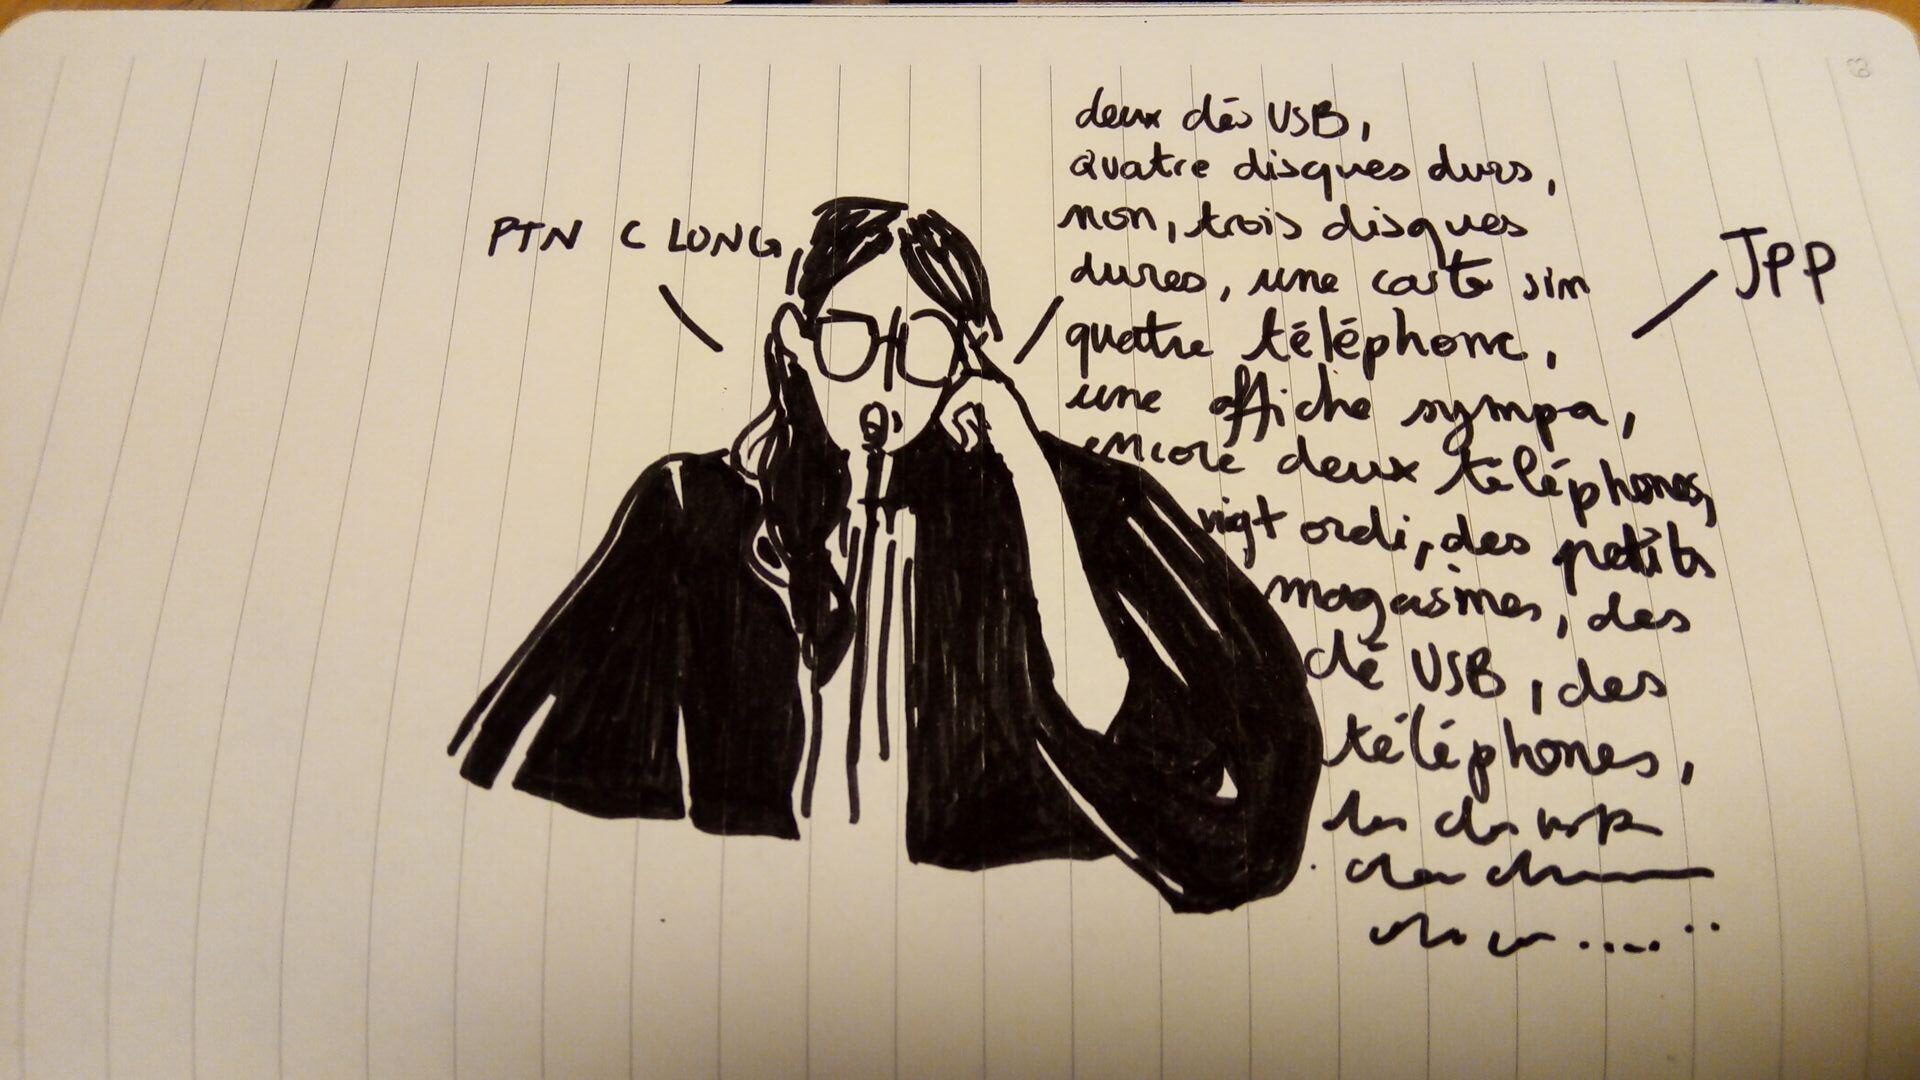 PTN C LONG
deux clés USB,
quatre disques durs,
non, trois disques
dures, une carte sim
quatre téléphone,
une affiche sympa,
encore deux téléphones,
vigt ordi, des petits
magasines, des
clé USB, des
téléphones,
JPP
63